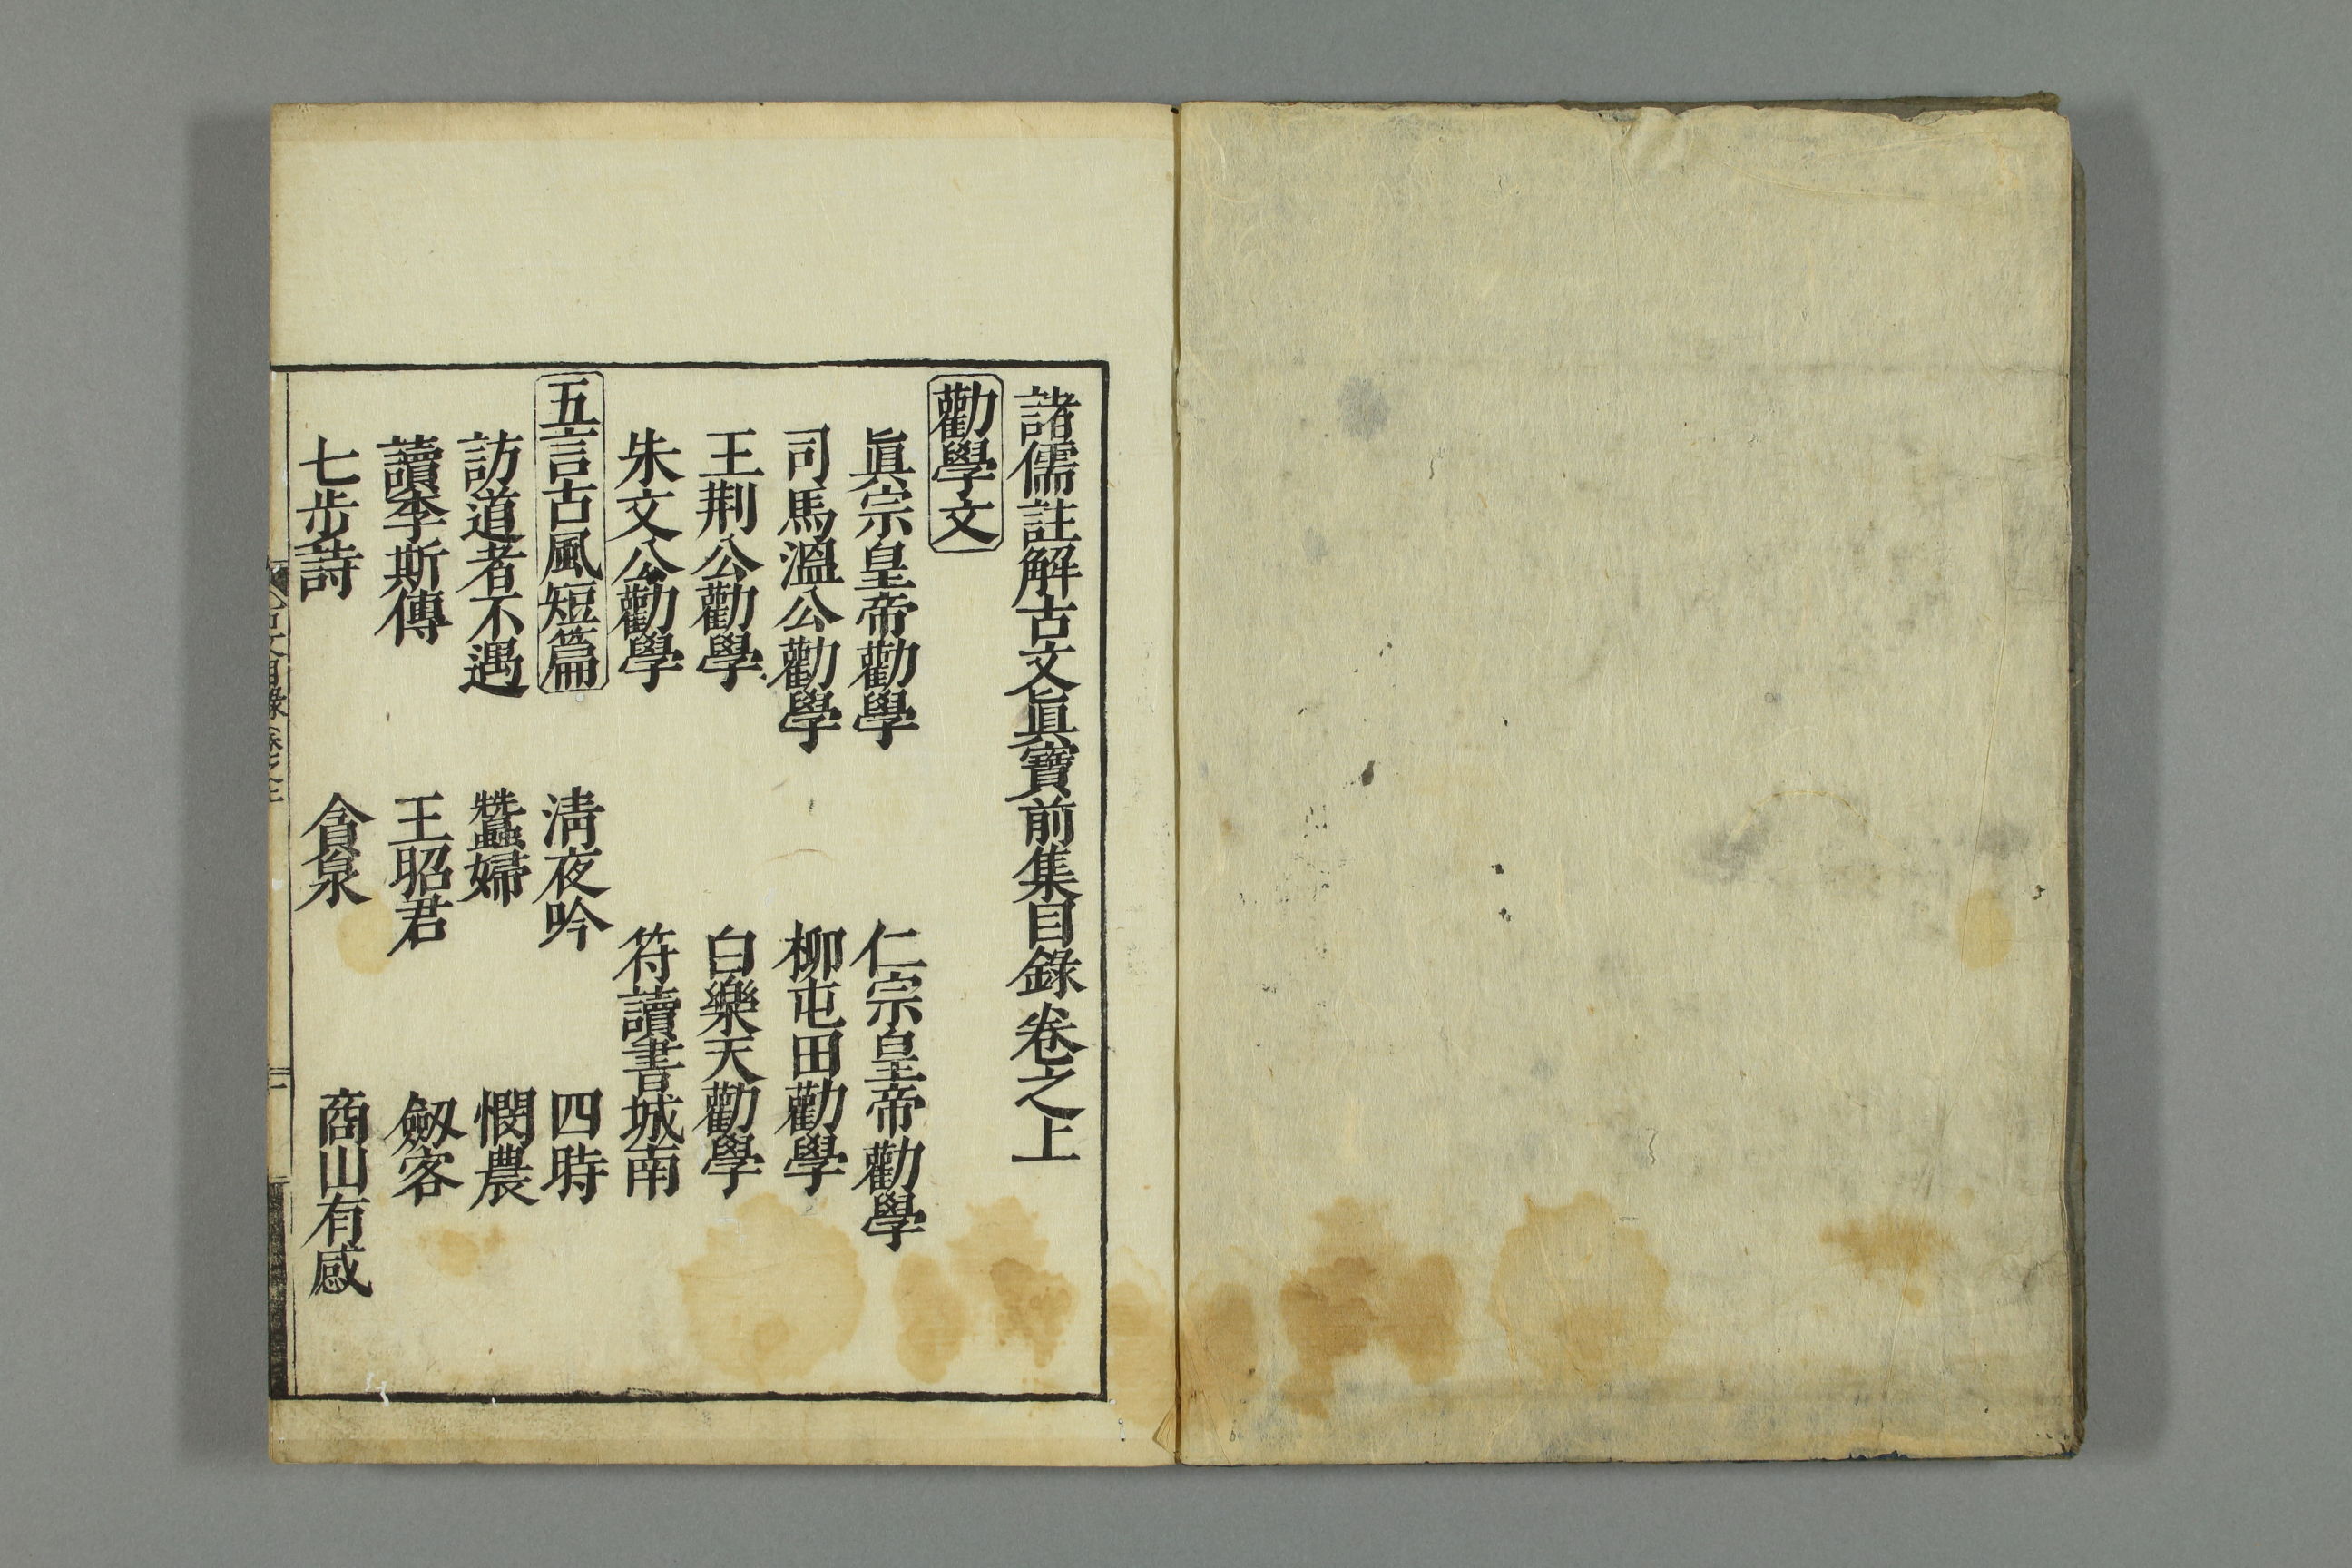 諸儒註解古文眞寶前集目錄卷之上
勸學文
眞宗皇帝勸學　仁宗皇帝勸學
司馬溫公勸學　柳屯田勸學
王荆公勸學　白樂天勸學
朱文公勸學　符讀書城南
五言古風短篇　淸夜吟　四時
訪道者不遇　蠶婦　憫農
讀李斯傳　王昭君　劔客
七步詩　貪泉　商山有感